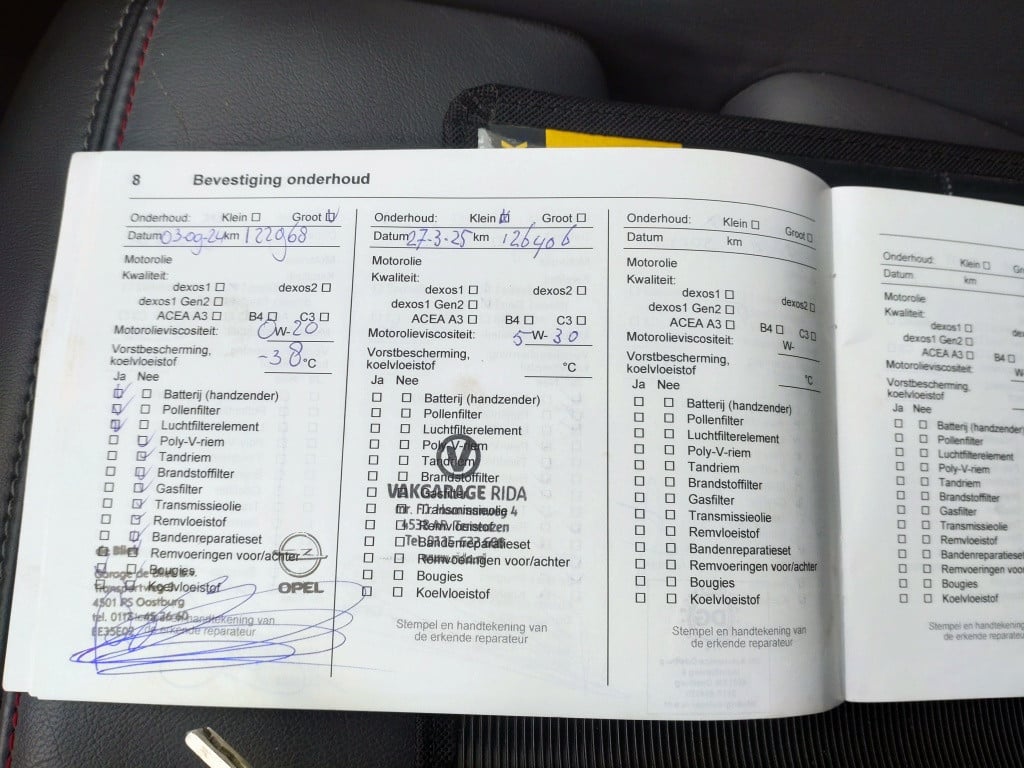 8 Bevestiging onderhoud
Onderhoud: Klein ☐ Groot ☑
Datum 03-09-24 km 122968
Motorolie
Kwaliteit:
dexos1 ☐ dexos2 ☐
dexos1 Gen2 ☐
ACEA A3 ☐ B4 ☐ C3 ☐
Motorolieviscositeit: 0W-20
Vorstbescherming,
koelvloeistof -38 °C
Ja Nee
☑ ☐ Batterij (handzender)
☑ ☐ Pollenfilter
☑ ☐ Luchtfilterelement
☐ ☑ Poly-V-riem
☐ ☑ Tandriem
☐ ☑ Brandstoffilter
☐ ☑ Gasfilter
☐ ☑ Transmissieolie
☐ ☑ Remvloeistof
☐ ☑ Bandenreparatieset
Remvoeringen voor/achter
Bougies
Koelvloeistof
4501 PS Oostburg
OPEL
Onderhoud: Klein ☑ Groot ☐
Datum 27-3-25 km 126406
Motorolie
Kwaliteit:
dexos1 ☐ dexos2 ☐
dexos1 Gen2 ☐
ACEA A3 ☐ B4 ☐ C3 ☐
Motorolieviscositeit: 5W-30
Vorstbescherming,
koelvloeistof °C
Ja Nee
☐ ☐ Batterij (handzender)
☐ ☐ Pollenfilter
☐ ☐ Luchtfilterelement
☐ ☐ Poly-V-riem
☐ ☐ Tandriem
☐ ☐ Brandstoffilter
VAKGARAGE RIDA
Gasfilter
Transmissieolie
Remvloeistof
Bandenreparatieset
☐ ☐ Remvoeringen voor/achter
☐ ☐ Bougies
☐ ☐ Koelvloeistof
Stempel en handtekening van
de erkende reparateur
Onderhoud: Klein ☐ Groot ☐
Datum km
Motorolie
Kwaliteit:
dexos1 ☐ dexos2 ☐
dexos1 Gen2 ☐
ACEA A3 ☐ B4 ☐ C3 ☐
Motorolieviscositeit: W-
Vorstbescherming,
koelvloeistof °C
Ja Nee
☐ ☐ Batterij (handzender)
☐ ☐ Pollenfilter
☐ ☐ Luchtfilterelement
☐ ☐ Poly-V-riem
☐ ☐ Tandriem
☐ ☐ Brandstoffilter
☐ ☐ Gasfilter
☐ ☐ Transmissieolie
☐ ☐ Remvloeistof
☐ ☐ Bandenreparatieset
☐ ☐ Remvoeringen voor/achter
☐ ☐ Bougies
☐ ☐ Koelvloeistof
Stempel en handtekening van
de erkende reparateur
Onderhoud: Klein ☐ Groot
Datum km
Motorolie
Kwaliteit:
dexos1 ☐
dexos1 Gen2 ☐
ACEA A3 ☐ B4 ☐
Motorolieviscositeit: W-
Vorstbescherming,
koelvloeistof
Ja Nee
☐ ☐ Batterij (handzender)
☐ ☐ Pollenfilter
☐ ☐ Luchtfilterelement
☐ ☐ Poly-V-riem
☐ ☐ Tandriem
☐ ☐ Brandstoffilter
☐ ☐ Gasfilter
☐ ☐ Transmissieolie
☐ ☐ Remvloeistof
☐ ☐ Bandenreparatieset
☐ ☐ Remvoeringen voor
☐ ☐ Bougies
☐ ☐ Koelvloeistof
Stempel en handtekening
de erkende reparateur